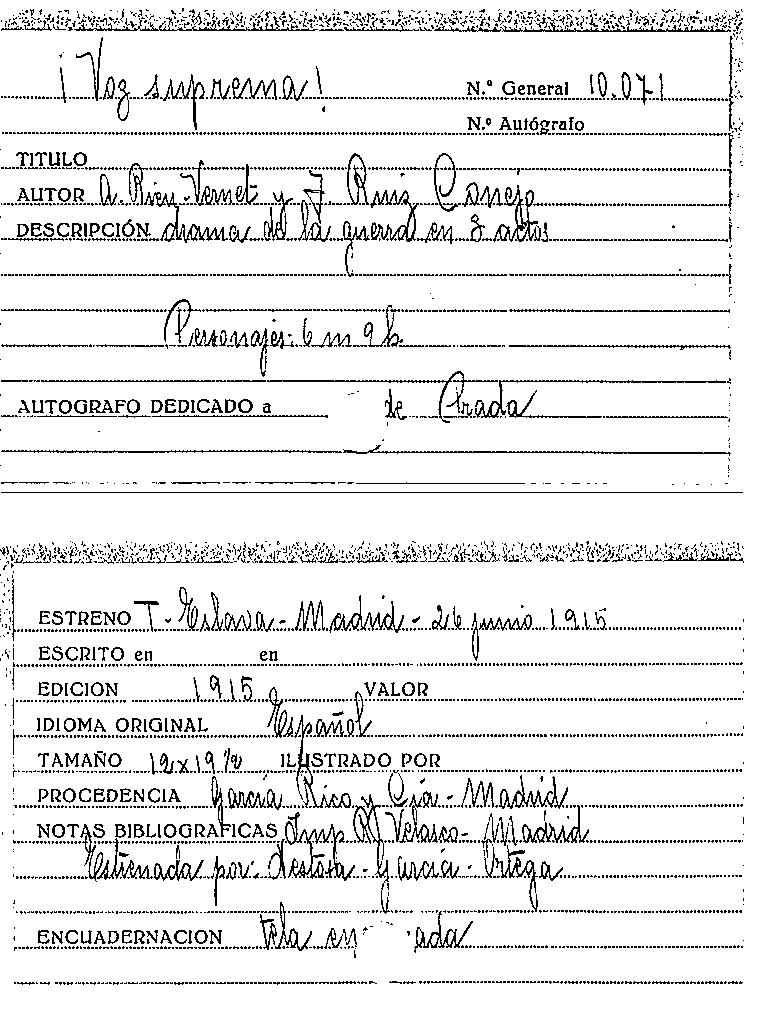 ¡Voz suprema!
N.º General 10.071
N.º Autógrafo
TITULO
AUTOR A. Rieu-Vernet y J. Ruiz Conejo
DESCRIPCIÓN drama de la guerra en 3 actos
Personajes: 6 m 9 h.
AUTOGRAFO DEDICADO a de Prada
ESTRENO T. Eslava - Madrid - 26 junio 1915
ESCRITO en en
EDICION 1915 VALOR
IDIOMA ORIGINAL Español
TAMAÑO 12x19 1/2 ILUSTRADO POR
PROCEDENCIA García Rico y Cía - Madrid
NOTAS BIBLIOGRAFICAS Imp R Velasco - Madrid
Estrenada por: - García - Ortega
ENCUADERNACION tela